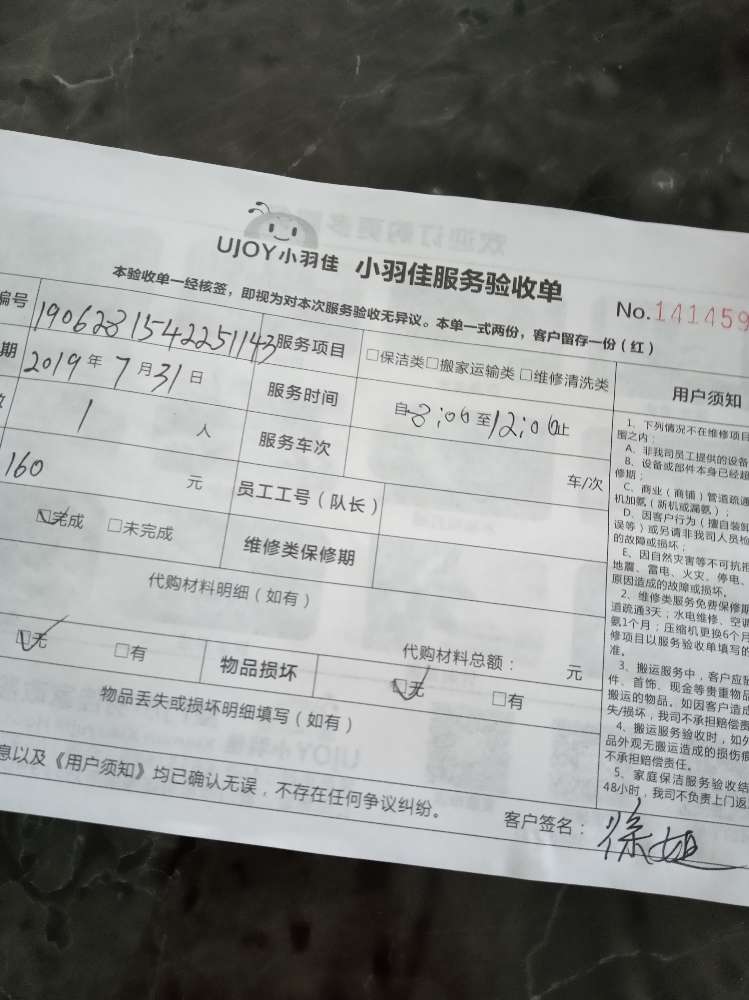 UJOY小羽佳 小羽佳服务验收单
本验收单一经核签，即视为对本次服务验收无异议。本单一式两份，客户留存一份（红）
No.141459
编号 1906281542251143 服务项目 □保洁类□搬家运输类□维修清洗类
期 2019年7月31日 服务时间 自8:00至12:00止
1 人 服务车次 车/次
160 元 员工工号（队长）
☑完成 □未完成 维修类保修期
代购材料明细（如有）
代购材料总额： 元
☑无 □有 物品损坏 ☑无 □有
物品丢失或损坏明细填写（如有）
息以及《用户须知》均已确认无误，不存在任何争议纠纷。
客户签名：徐姐
用户须知
1、下列情况不在维修项目
围之内：
A、非我司员工提供的设备
B、设备或部件本身已经超
修期；
C、商业（商铺）管道疏通
机加氨（新机或漏氨）；
D、因客户行为（擅自装卸
误等）或另请非我司人员检
的故障或损坏；
E、因自然灾害等不可抗拒
地震、雷电、火灾、停电、
原因造成的故障或损坏。
2、维修类服务免费保修期
道疏通3天；水电维修、空调
氨1个月；压缩机更换6个月
修项目以服务验收单填写的
准。
3、搬运服务中，客户应验
件、首饰、现金等贵重物品
搬运的物品。如因客户造成
失/损坏，我司不承担赔偿责
4、搬运服务验收时，如外
品外观无搬运造成的损伤痕
不承担赔偿责任。
5、家庭保洁服务验收结
48小时，我司不负责上门返